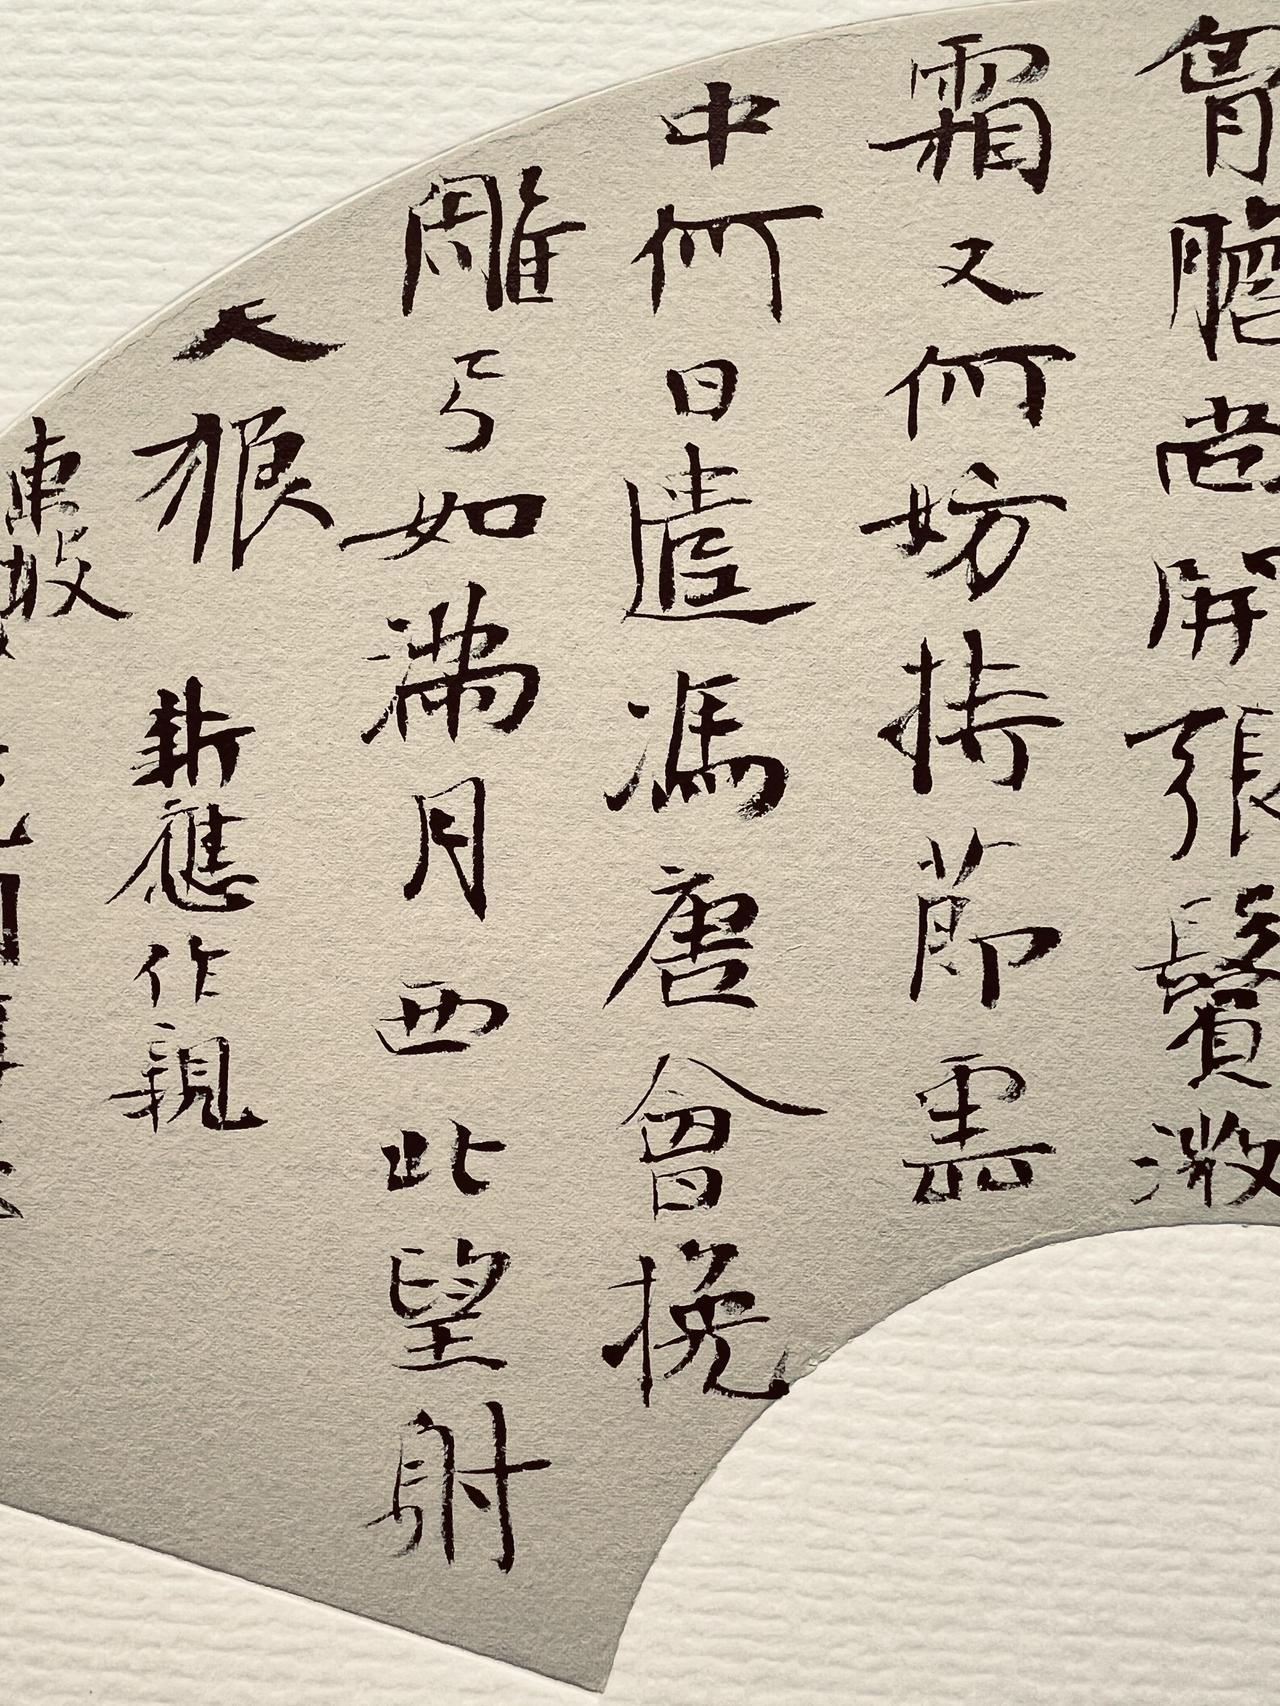 胷膽尚開張鬢微
霜又何妨持節雲
中何日遣馮唐會挽
雕弓如滿月西北望射
天狼 新應作親
東坡